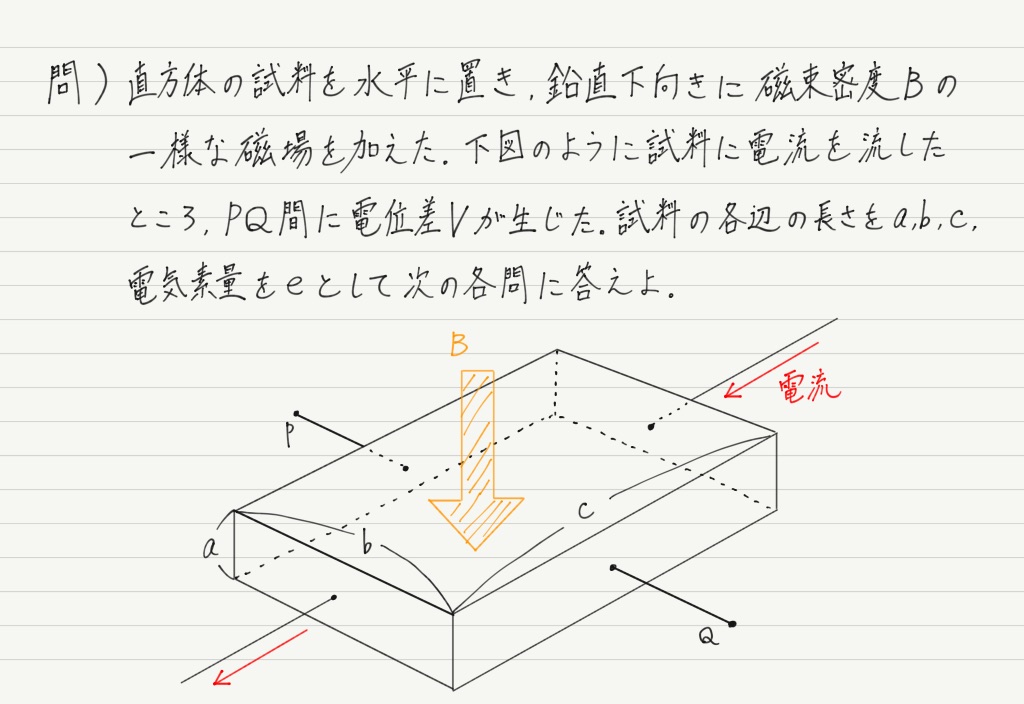 問）直方体の試料を水平に置き，鉛直下向きに磁束密度Bの
一様な磁場を加えた．下図のように試料に電流を流した
ところ，PQ間に電位差Vが生じた．試料の各辺の長さをa,b,c，
電気素量をeとして次の各問に答えよ．
B
電流
P
c
a
b
Q